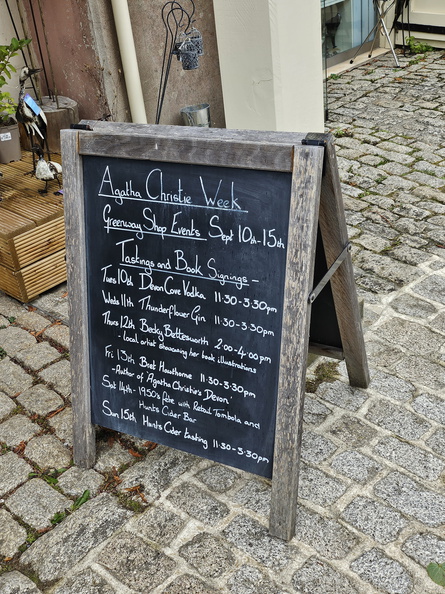 Agatha Christie Week
Greenway Shop Events Sept 10th-15th
Tastings and Book Signings -
Tues 10th Devon Cove Vodka 11·30-3·30pm
Weds 11th Thunderflower Gin 11·30-3·30pm
Thurs 12th Becky Bettesworth 2·00-4·00pm
- Local artist showcasing her book illustrations
Fri 13th Bret Hawthorne 11·30-3·30pm
- Author of 'Agatha Christie's Devon'
Sat 14th - 1950's fete with Retail Tombola and
Hunts Cider Bar
Sun 15th Hunts Cider tasting 11·30-3·30pm